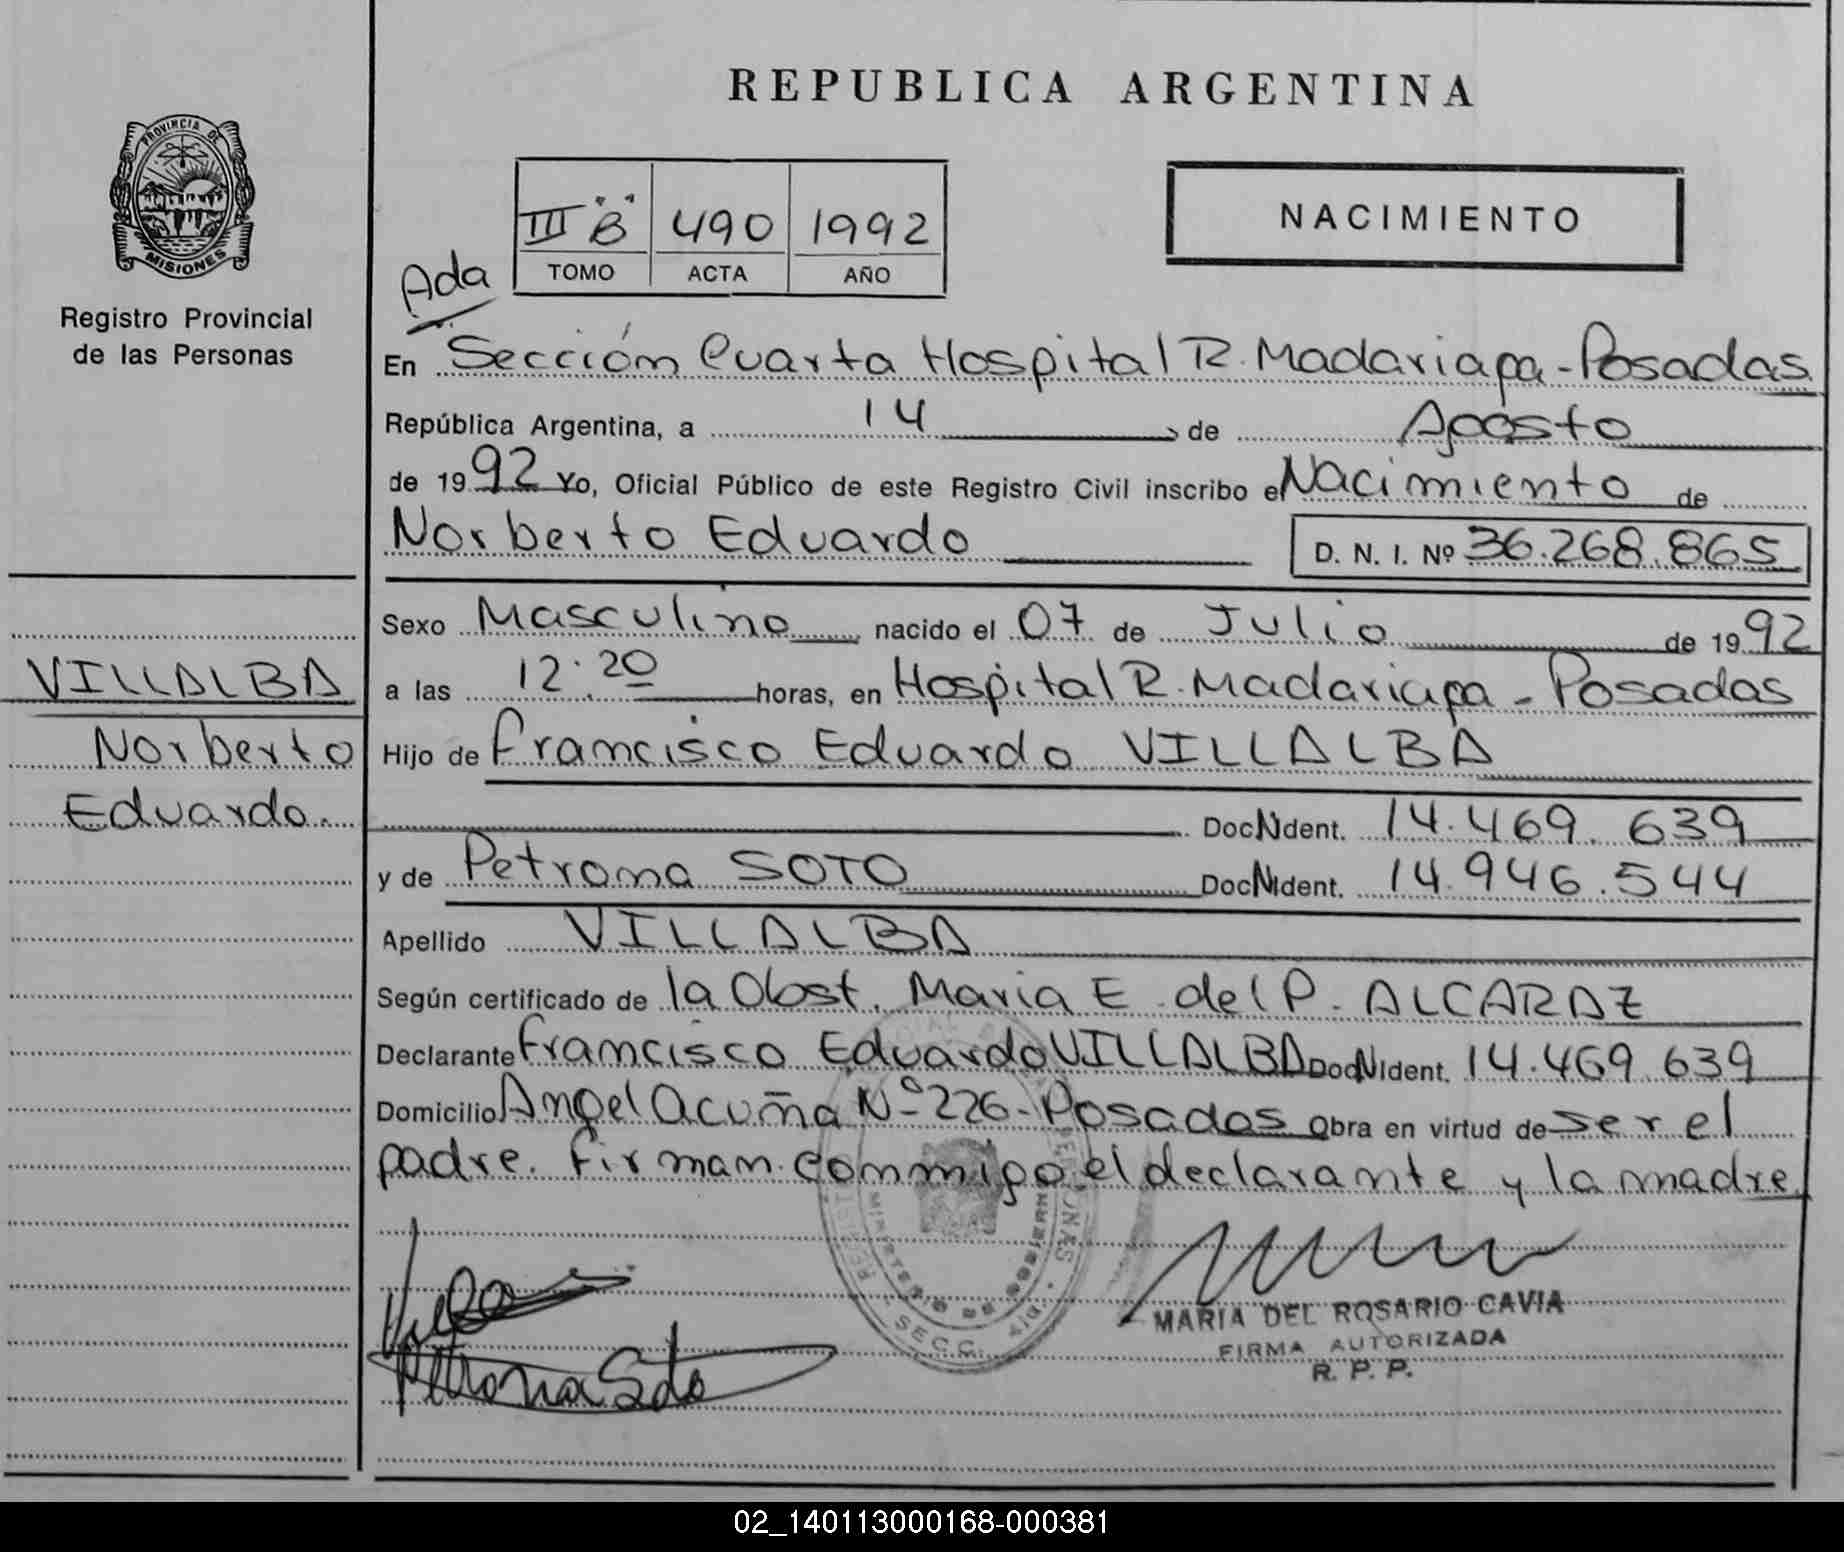 REPUBLICA ARGENTINA
PROVINCIA DE
MISIONES
Registro Provincial
de las Personas
III "B" 490 1992
TOMO ACTA AÑO
NACIMIENTO
Ada
En Sección Cuarta Hospital R. Madariaga - Posadas
República Argentina, a 14 de Agosto
de 1992 Yo, Oficial Público de este Registro Civil inscribo el Nacimiento de
Norberto Eduardo D. N. I. Nº 36.268.865
Sexo Masculino nacido el 07 de Julio de 1992
a las 12:20 horas, en Hospital R. Madariaga - Posadas
Hijo de Francisco Eduardo VILLALBA
Doc N Ident. 14.469.639
y de Petrona SOTO Doc N Ident. 14.946.544
Apellido VILLALBA
Según certificado de la Obst. Maria E. del P. ALCARAZ
Declarante Francisco Eduardo VILLALBA Doc N Ident. 14.469.639
Domicilio Angel Acuña Nº 226 - Posadas Obra en virtud de ser el
padre. Firman conmigo el declarante y la madre
VILLALBA
Norberto
Eduardo.
Petrona Soto
MARIA DEL ROSARIO CAVIA
FIRMA AUTORIZADA
R. P. P.
MINISTERIO DE GOBIERNO
SECC.
02_140113000168-000381